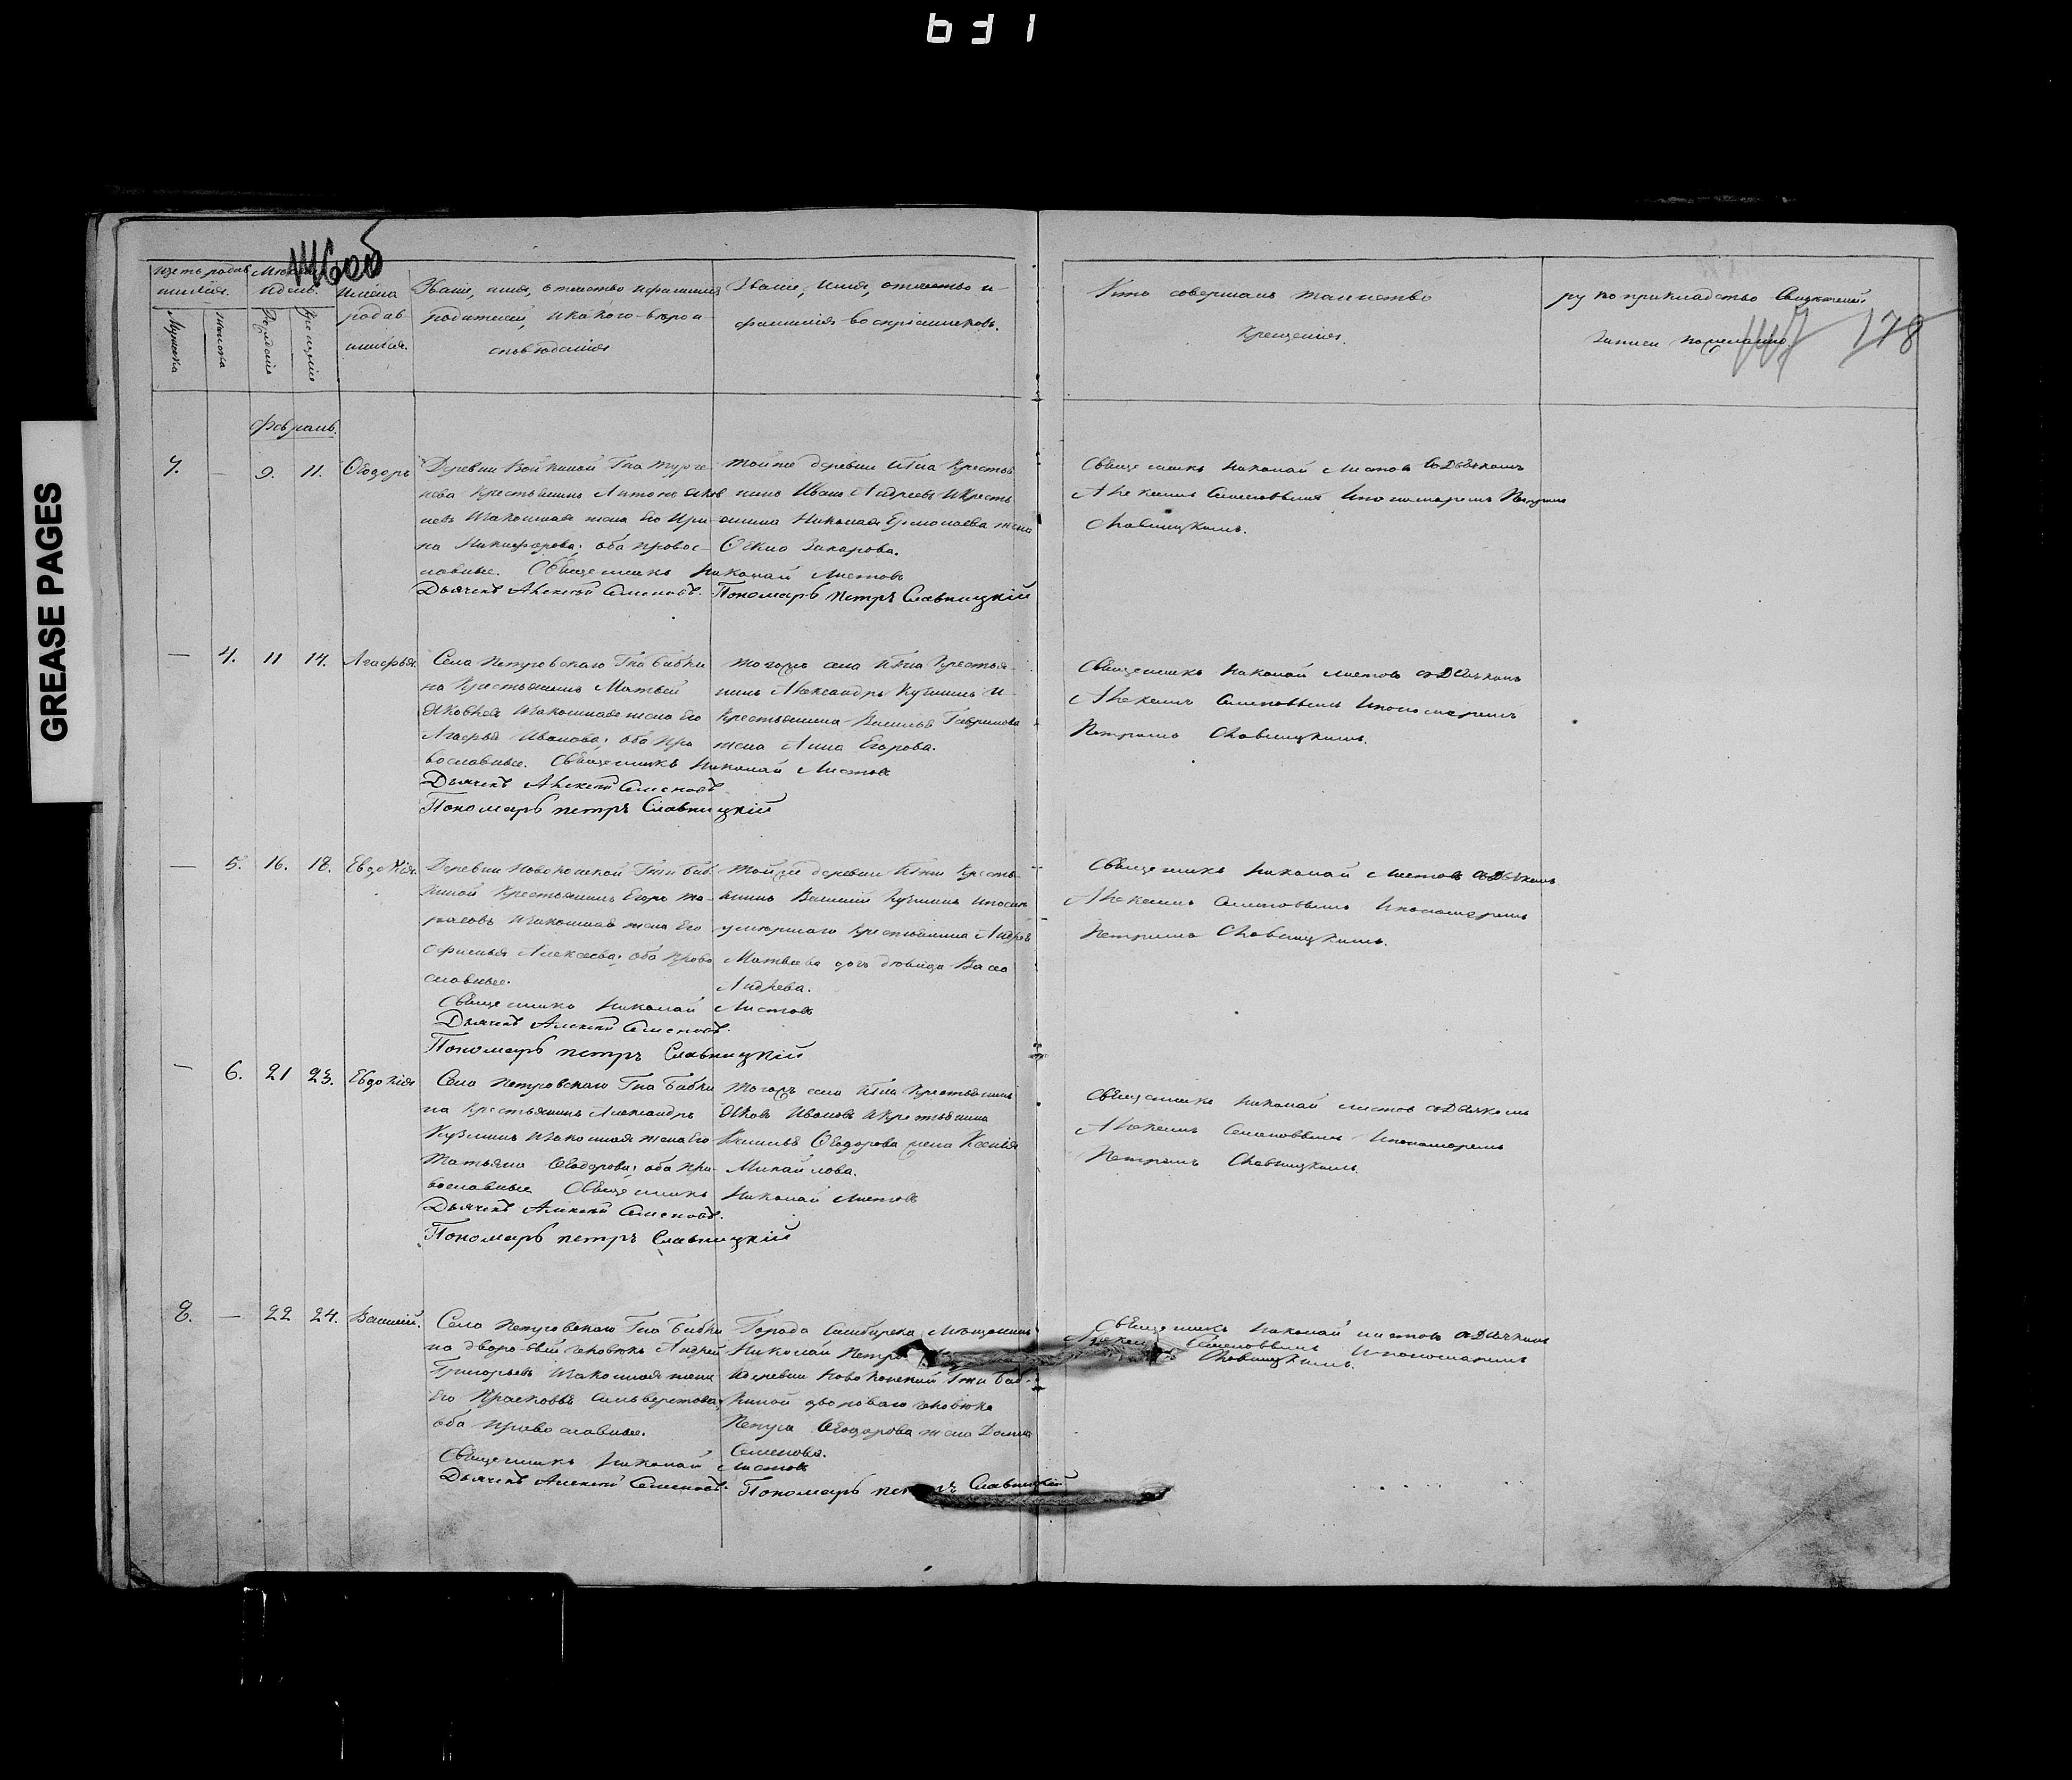 631
GREASE PAGES
178
Счетъ родив
шихся.
Мужеска
Женска
Мѣсяцъ
и день.
Рожденія
Крещенія
Имена
родив
шихся.
Званіе, имя, отчество и фамилія
родителей, и какого вѣроис
повѣданія
Званіе, имя, отчество и
фамилія воспріемниковъ.
Кто совершалъ таинство
крещенія.
рукоприкладство свидѣтелей
записи по желанію
Февраль.
7. — 9. 11. Ѳеодоръ
Деревни Войкиной Гна Турге
нева крестьянинъ Антонъ Яков
левъ и законная жена его Ири
на Никифорова; оба правос-
лавные. Священникъ Николай Листовъ
Дьячекъ Алексѣй Семеновъ. Пономарь петръ Славницкій
Тойже деревни Гна крестья
нинъ Иванъ Андреевъ и кресть
янина Николая Ермолаева жена
Ѳекла Захарова.
Священникъ Николай Листовъ съ Дьячкомъ
Алексѣемъ Семеновымъ и пономаремъ Петромъ
Славницкимъ.
— 4. 11 14. Агафья.
Села Петровскаго Гна Бабки
на крестьянинъ Матвей
Яковлевъ и законная жена его
Агафья Иванова; оба пра
вославные. Священникъ Николай Листовъ
Дьячекъ Алексѣй Семеновъ
Пономарь петръ Славницкій
Тогожъ села Гна крестья
нинъ Александръ Кузминъ и
крестьянина Василья Гаврилова
жена Анна Егорова.
Священникъ Николай Листовъ съ Дьячкомъ
Алексѣемъ Семеновымъ и пономаремъ
Петромъ Славницкимъ.
— 5. 16. 18. Евдокія.
Деревни Гжи Баб
киной крестьянинъ Егоръ Та-
расовъ и законная жена его
Афимья Алексеева; оба право
славные.
Священникъ Николай Листовъ
Дьячекъ Алексѣй Семеновъ.
Пономарь петръ Славницкій
Тойже деревни Гжи кресть
янинъ Василій Кузминъ и
умершаго крестьянина Андрея
Матвеева дочь дѣвица Васса
Андрева.
Священникъ Николай Листовъ съ Дьячкомъ
Алексѣемъ Семеновымъ и пономаремъ
Петромъ Славницкимъ.
— 6. 21 23. Евдокія
Села Петровскаго Гна Бабки
на крестьянинъ Александръ
Кузминъ и законная жена его
Татьяна Ѳеодорова; оба пра-
вославные Священникъ Николай Листовъ
Дьячекъ Алексѣй Семеновъ.
Пономарь петръ Славницкій
Тогожъ села Гна крестьянинъ
Яковъ Ивановъ и крестьянина
Василья Ѳеодорова жена Ксенія
Михайлова.
Священникъ Николай Листовъ съ Дьячкомъ
Алексѣемъ Семеновымъ и пономаремъ
Петромъ Славницкимъ.
8. — 22 24. Василій.
Села Петровскаго Гна Бабки
на дворовый человѣкъ Андрей
Григорьевъ и законная жена
его Прасковья Сильверстова;
оба православные.
Священникъ Николай Листовъ
Дьячекъ Алексѣй Семеновъ. Пономарь петръ Славницкій
Города Симбирска Мѣщанинъ
Николай
и деревни Гжи Баб-
киной двороваго человѣка
Петра Ѳеодорова жена
Семенова.
Священникъ Николай Листовъ съ Дьячкомъ
Алексѣемъ Семеновымъ и пономаремъ
Славницкимъ.